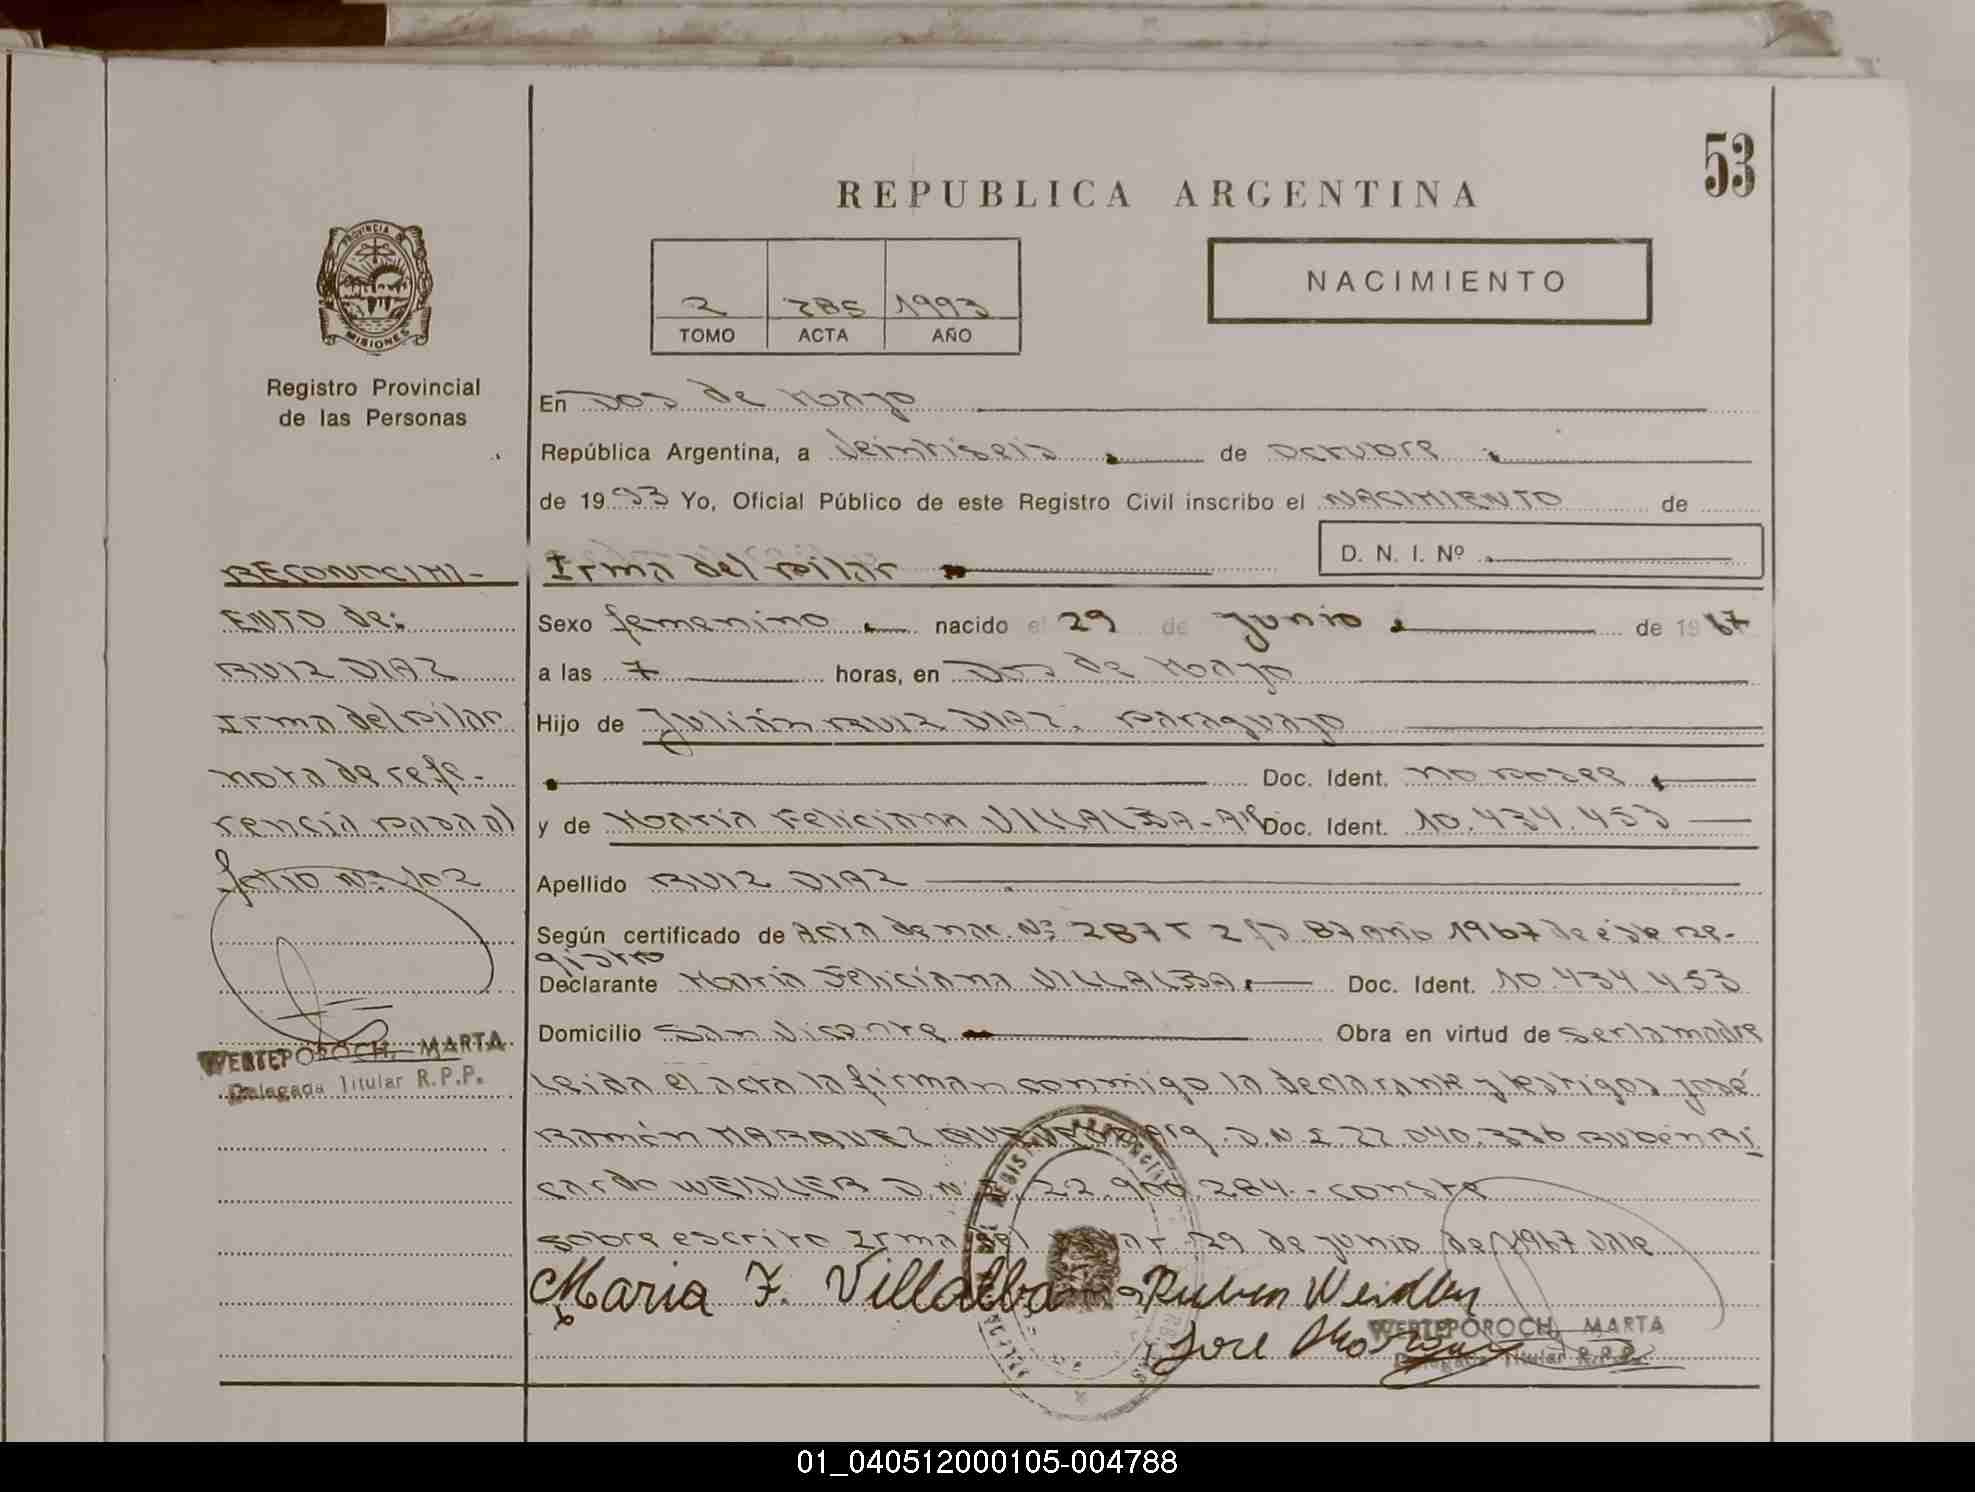 53
REPUBLICA ARGENTINA
PROVINCIA DE
MISIONES
Registro Provincial
de las Personas
2 285 1993
TOMO ACTA AÑO
NACIMIENTO
En Dos de Mayo
República Argentina, a veintiseis de octubre
de 1993 Yo, Oficial Público de este Registro Civil inscribo el NACIMIENTO de
Irma del Pilar D. N. I. Nº
Sexo femenino nacido el 29 de Junio de 1967
a las 7 horas, en Dos de Mayo
Hijo de Julián RUIZ DIAZ. Paraguayo
Doc. Ident. no posee
y de Maria Feliciana VILLALBA - Doc. Ident. 10.434.453
Apellido RUIZ DIAZ
Según certificado de Acta de nac. Nº 287 T 2 fº 87 año 1967 de éste re-
gistro
Declarante Maria Feliciana VILLALBA Doc. Ident. 10.434.453
Domicilio San Vicente Obra en virtud de ser la madre
Leida el acta la firman conmigo la declarante y testigos José
Ramón MARQUEZ Arg. D.N.I 22.040.336 Rubén Ri
cardo WEIDLER D.N.I. 22.900.284.- conste
sobre escrito Irma del Pilar 29 de junio de 1967 vale
Maria F. Villalba Ruben Weidler
José
WERTEPOROCH, MARTA
Delegada Titular R.P.P.
RECONOCIMI-
ENTO de:
RUIZ DIAZ
Irma del Pilar
nota de refe-
rencia pasa al
folio Nº 102
WERTEPOROCH, MARTA
Delegada Titular R.P.P.
01_040512000105-004788